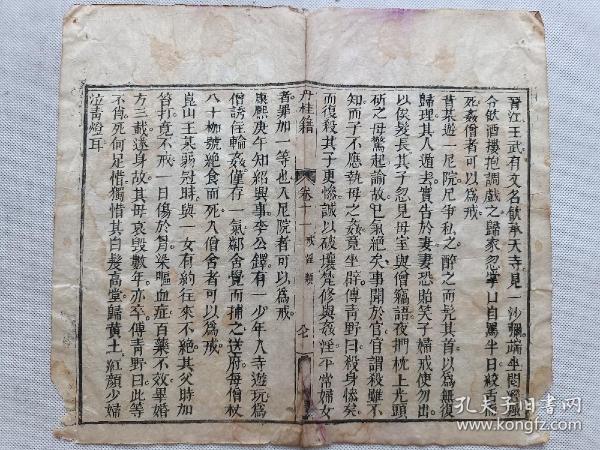 晉江王武有文名飲承天寺見一沙彌端坐閱經
令飲酒摟抱調戲之歸家忽掌口自罵半日絞舌
死姦僧者可以爲戒
昔某遊一尼院尼爭私之醉之而髡其首以爲無復
歸理其人遁去實告於妻妻恐貽笑子婦戒使勿出
以俟髮長其子忽見母室與僧竊語夜捫枕上光頭
斫之母驚起諭故已氣絕矣事聞於官官謂殺雖不
而子不應執母之姦竟坐辟傅青野曰殺身慘矣
而復殺其子更慘誠以破壞梵修與姦淫平常婦女
丹桂籍
卷十一
戒淫類
者罪加一等也入尼院者可以爲戒
康熙庚午知紹興事李公鐸有一少年入寺遊玩爲
僧誘住輪姦僅存一氣鄰舍覺而捕之送府每僧杖
八十枷號絕食而死入僧舍者可以爲戒
崑山王某弱冠時與一女有約往來不絕其父時加
笞打竟不戒一日傷於脅染嘔血症百藥不效畢婚
方三載遂身故其母哀毀數年亦卒傅青野曰此等
不肖死何足惜獨惜其白髮高堂歸黃土紅顏少婦
泣青燈耳
孔夫子旧书网
www.kongfz.com